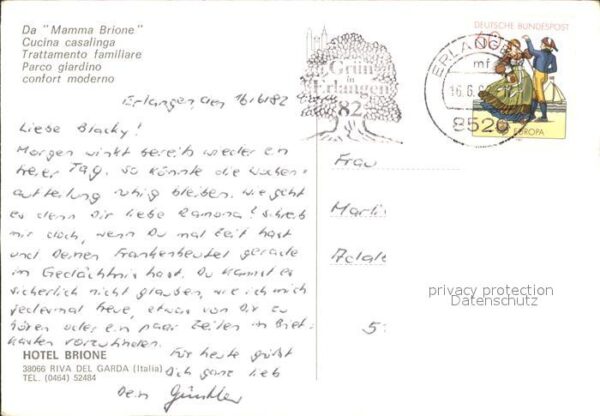 Da "Mamma Brione"
Cucina casalinga
Trattamento familiare
Parco giardino
confort moderno
DEUTSCHE BUNDESPOST
60
EUROPA
ERLANGEN
mf
16.6.82
8520
Grün
in
Erlangen
82
Erlangen, den 16/6/82
Liebe Blacky!
Morgen winkt bereits wieder ein
freier Tag. So könnte die Wochen-
aufteilung ruhig bleiben. Wie geht
es denn Dir liebe Ramona? Schreib
mir doch, wenn Du mal Zeit hast
und Deinen Frankenbeutel gerade
im Gedächtnis hast. Du kannst es
sicherlich nicht glauben, wie ich mich
jedesmal freue, etwas von Dir zu
hören oder ein paar Zeilen im Brief-
kasten vorzufinden.
Für heute grüßt
Dich ganz lieb
Dein Günther
Frau
Marti
Adala
5
privacy protection
Datenschutz
HOTEL BRIONE
38066 RIVA DEL GARDA (Italia)
TEL. (0464) 52484